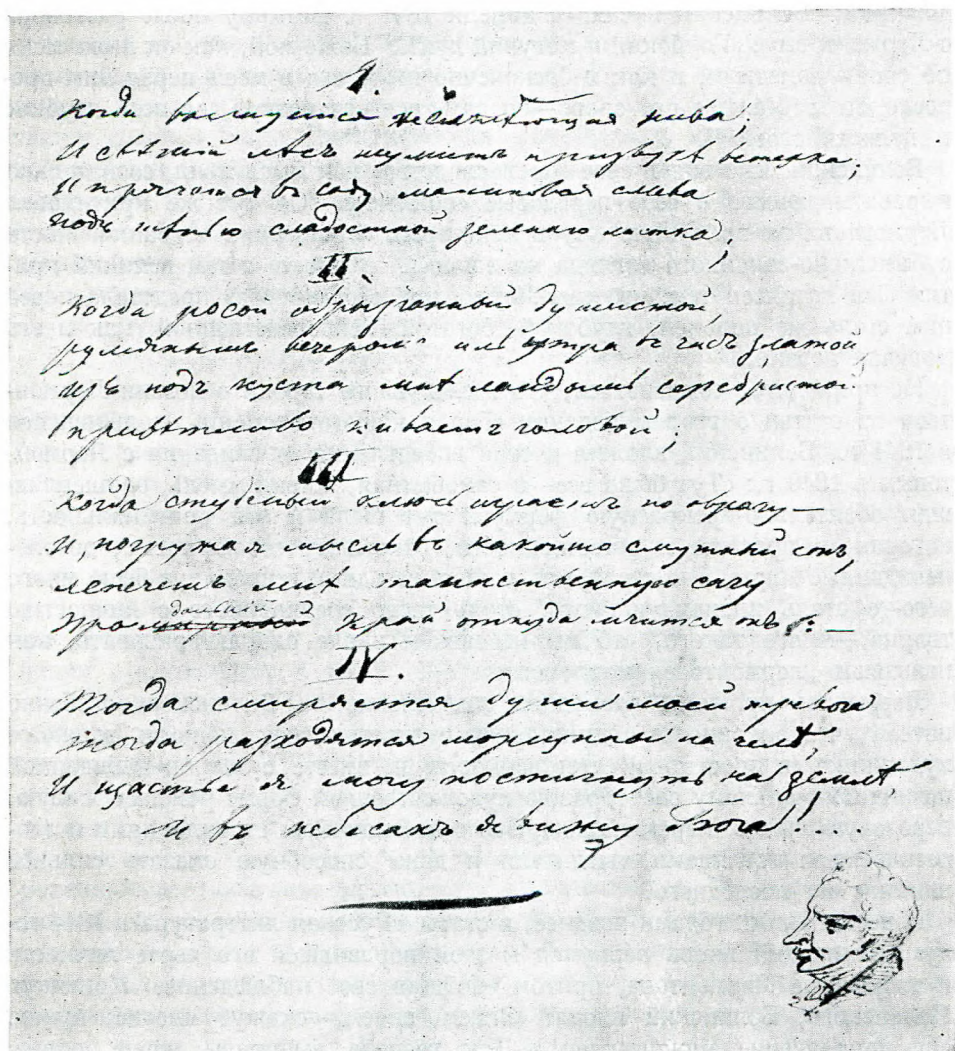 I.
Когда волнуется желтѣющая нива
И свѣжій лѣсъ шумитъ при звукѣ вѣтерка.
И прячется въ саду малиновая слива
подъ тѣнью сладостной зеленаго листка;
II
Когда росой обрызганный душистой,
румянымъ вечеромъ иль утра въ часъ златой
изъ подъ куста мнѣ ландышъ серебристой
привѣтливо киваетъ головой;
III
Когда студеный ключъ играетъ по оврагу
И погружая мысль въ какой то смутный сонъ,
лепечетъ мнѣ таинственную сагу
про мирный край откуда мчится онъ.
IV.
Тогда смиряется души моей тревога
тогда расходятся морщины на челѣ
И щастье я могу постигнуть на землѣ
И въ небесахъ я вижу Бога!